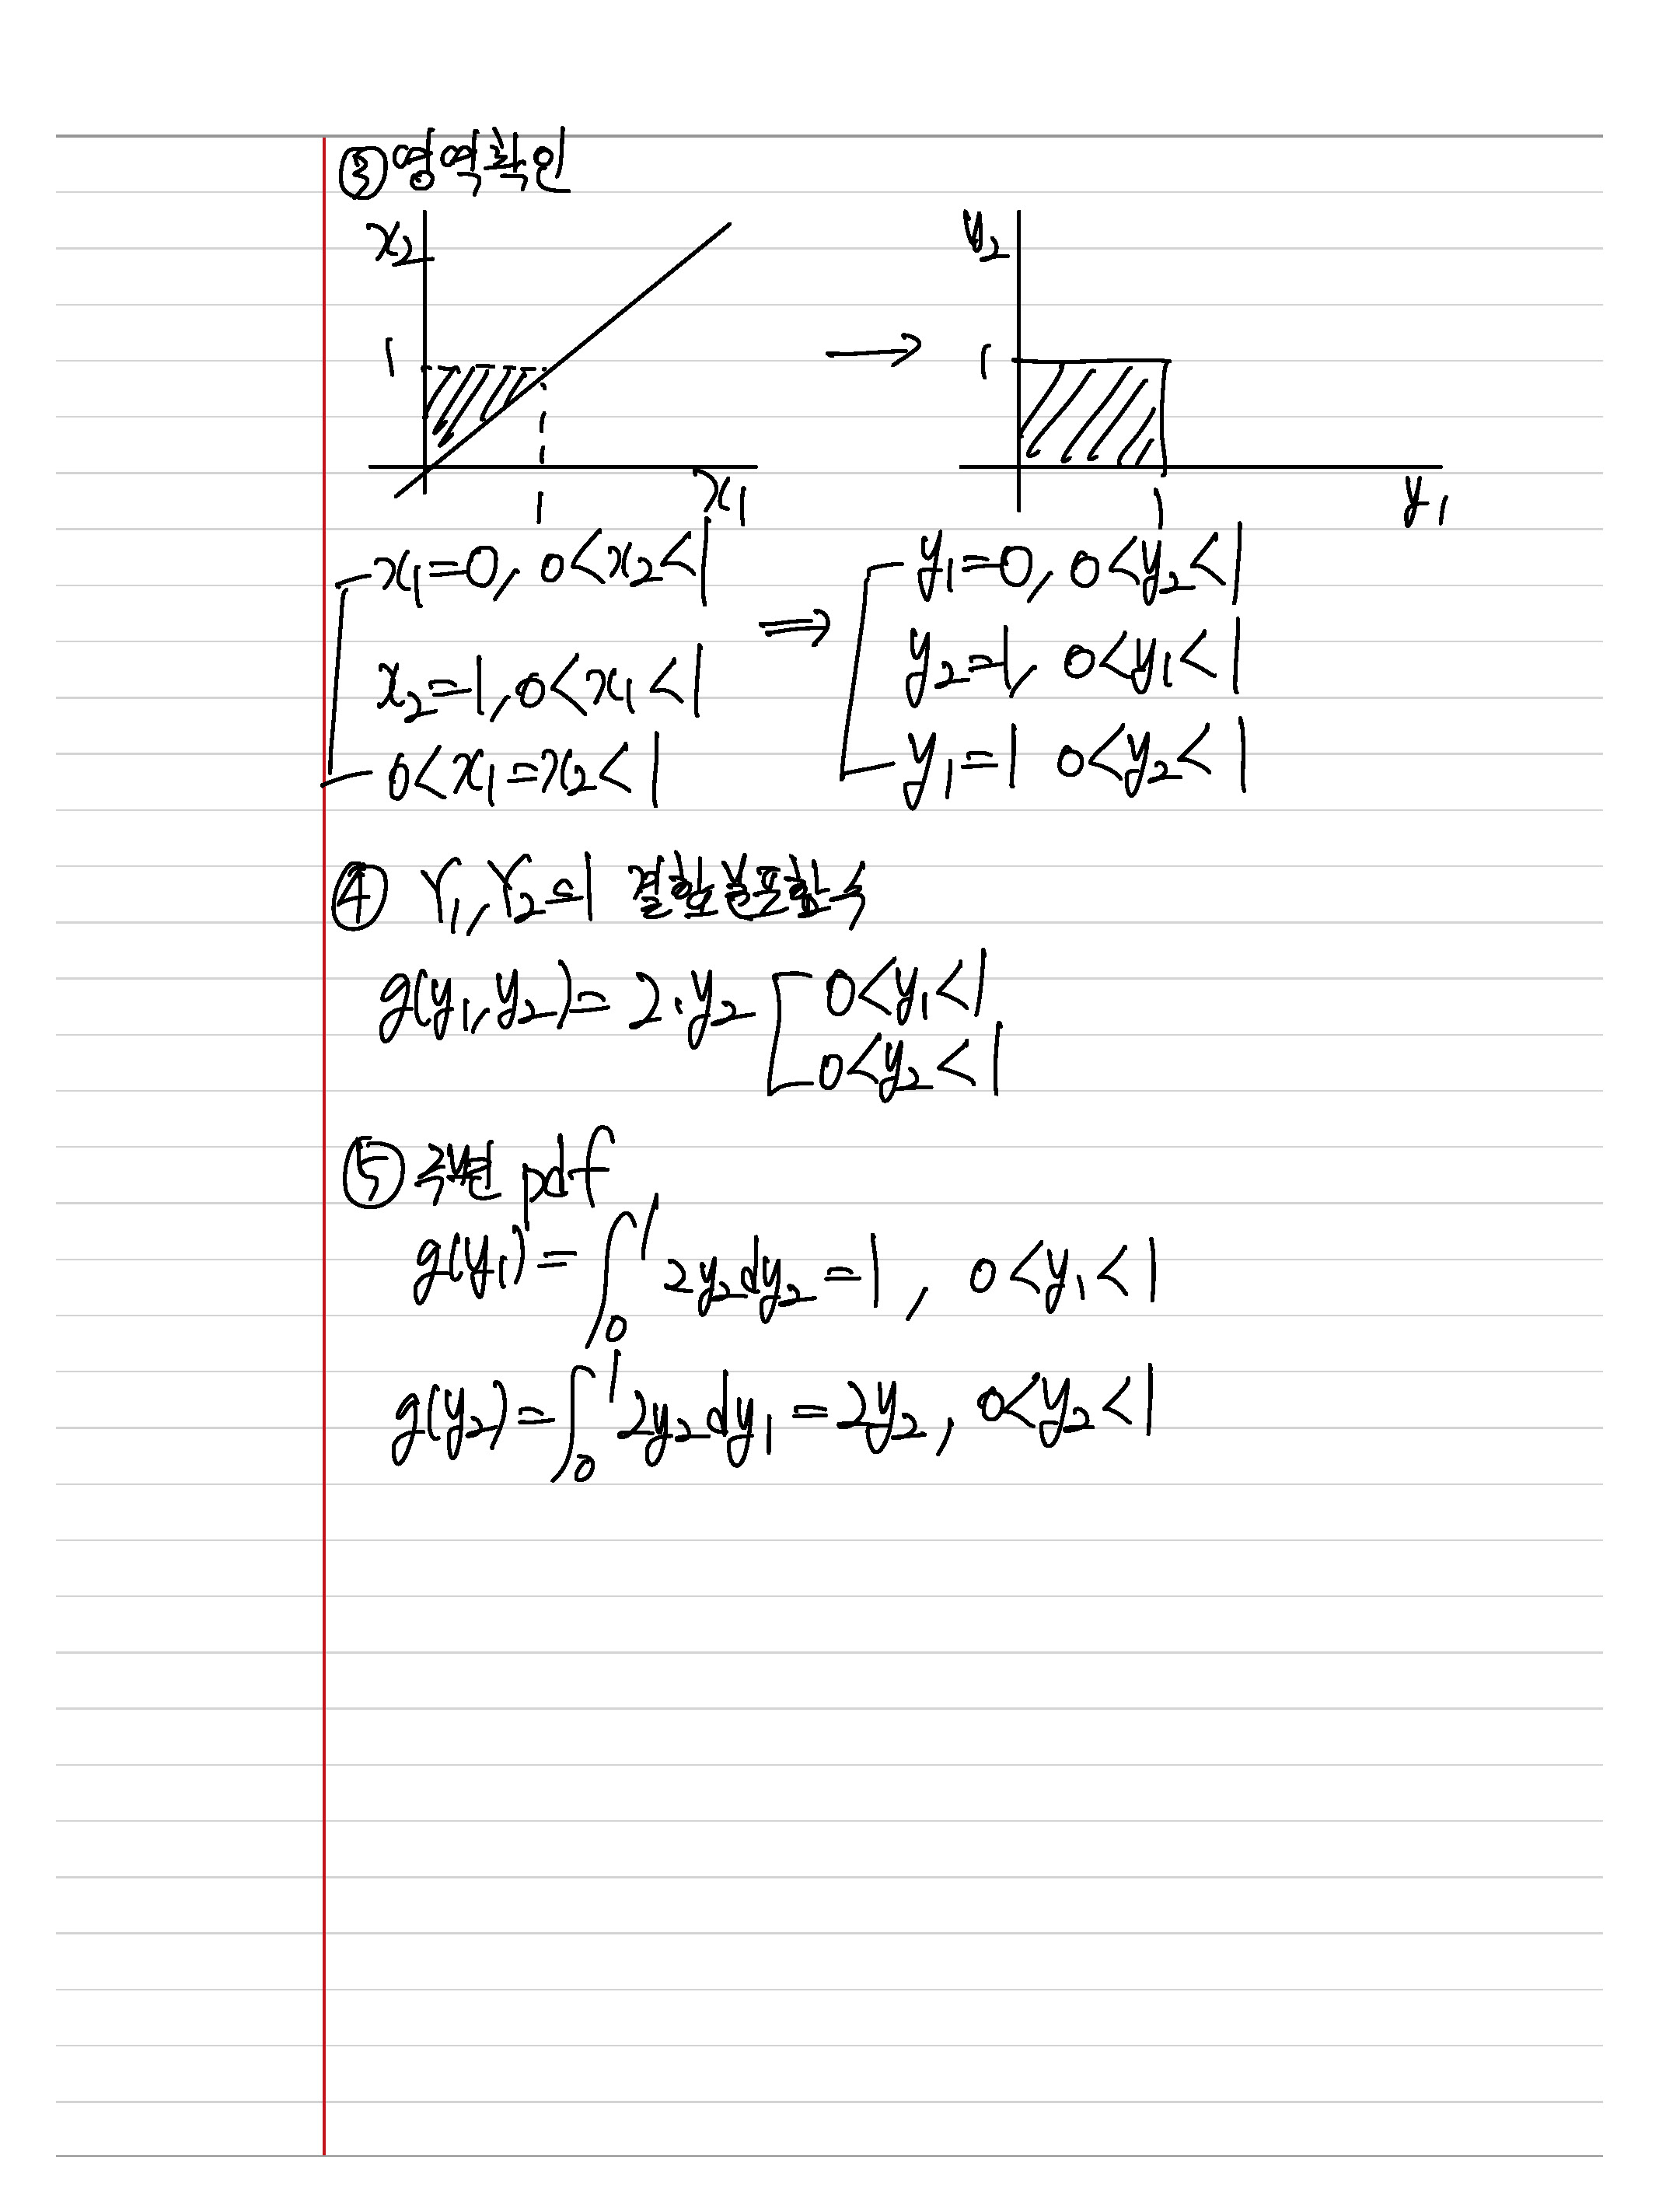 ③ 영역확인
x₂ 1 1 x₁ → y₂ 1 1 y₁
x₁=0, 0<x₂<1 ⟹ y₁=0, 0<y₂<1
x₂=1, 0<x₁<1 y₂=1, 0<y₁<1
0<x₁=x₂<1 y₁=1 0<y₂<1
④ Y₁, Y₂의 결합분포함수
g(y₁, y₂)= 2·y₂ [ 0<y₁<1
0<y₂<1
⑤ 주변 pdf
g(y₁)= ∫₀¹ 2y₂dy₂ =1, 0<y₁<1
g(y₂)= ∫₀¹ 2y₂dy₁ =2y₂, 0<y₂<1